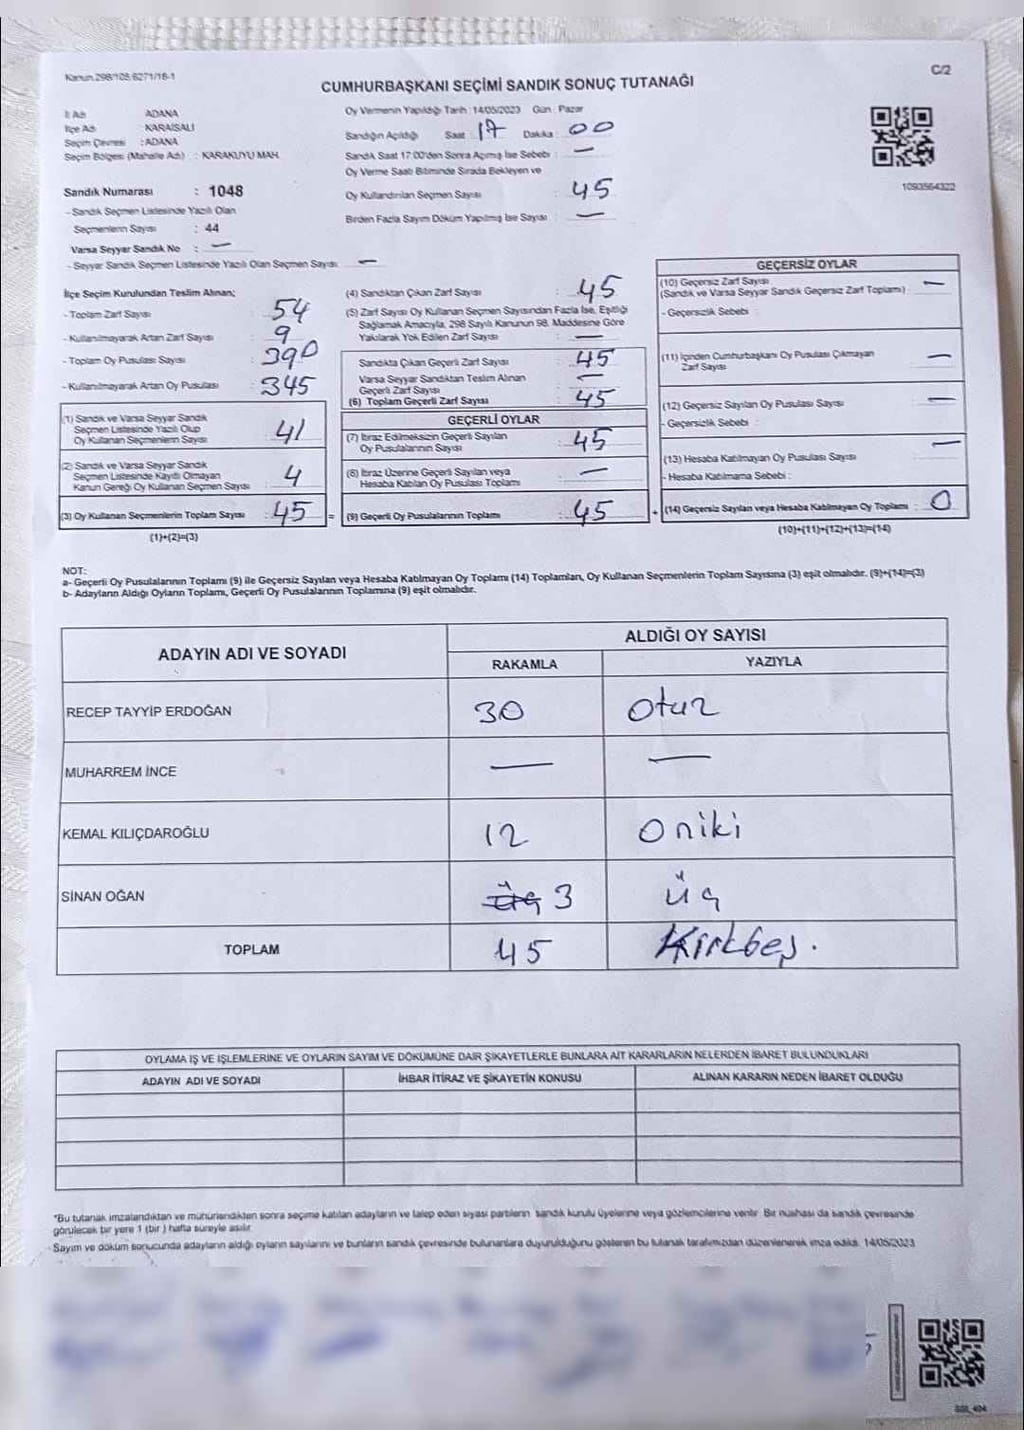 Kanun.298/105.6271/16-1
C/2
CUMHURBAŞKANI SEÇİMİ SANDIK SONUÇ TUTANAĞI
İl Adı ADANA
İlçe Adı : KARAİSALI
Seçim Çevresi : ADANA
Seçim Bölgesi (Mahalle Adı) : KARAKUYU MAH.
Sandık Numarası : 1048
- Sandık Seçmen Listesinde Yazılı Olan
Seçmenlerin Sayısı : 44
Varsa Seyyar Sandık No : —
- Seyyar Sandık Seçmen Listesinde Yazılı Olan Seçmen Sayısı —
Oy Vermenin Yapıldığı Tarih : 14/05/2023 Gün : Pazar
Sandığın Açıldığı Saat 17 Dakika : 00
Sandık Saat 17:00'den Sonra Açılmış İse Sebebi : —
Oy Verme Saati Bitiminde Sırada Bekleyen ve
Oy Kullandırılan Seçmen Sayısı 45
Birden Fazla Sayım Döküm Yapılmış İse Sayısı —
1093564322
İlçe Seçim Kurulundan Teslim Alınan;
- Toplam Zarf Sayısı : 54
- Kullanılmayarak Artan Zarf Sayısı : 9
- Toplam Oy Pusulası Sayısı : 390
- Kullanılmayarak Artan Oy Pusulası : 345
(1) Sandık ve Varsa Seyyar Sandık
Seçmen Listesinde Yazılı Olup
Oy Kullanan Seçmenlerin Sayısı 41
(2) Sandık ve Varsa Seyyar Sandık
Seçmen Listesinde Kayıtlı Olmayan
Kanun Gereği Oy Kullanan Seçmen Sayısı 4
(3) Oy Kullanan Seçmenlerin Toplam Sayısı : 45 =
(1)+(2)=(3)
(4) Sandıktan Çıkan Zarf Sayısı : 45
(5) Zarf Sayısı Oy Kullanan Seçmen Sayısından Fazla İse, Eşitliği
Sağlamak Amacıyla, 298 Sayılı Kanunun 98. Maddesine Göre
Yakılarak Yok Edilen Zarf Sayısı : —
Sandıkta Çıkan Geçerli Zarf Sayısı 45
Varsa Seyyar Sandıktan Teslim Alınan
Geçerli Zarf Sayısı —
(6) Toplam Geçerli Zarf Sayısı 45
GEÇERLİ OYLAR
(7) İtiraz Edilmeksizin Geçerli Sayılan
Oy Pusulalarının Sayısı : 45
(8) İtiraz Üzerine Geçerli Sayılan veya
Hesaba Katılan Oy Pusulası Toplamı —
(9) Geçerli Oy Pusulalarının Toplamı : 45 +
GEÇERSİZ OYLAR
(10) Geçersiz Zarf Sayısı
(Sandık ve Varsa Seyyar Sandık Geçersiz Zarf Toplamı) : —
- Geçersizlik Sebebi :
(11) İçinden Cumhurbaşkanı Oy Pusulası Çıkmayan
Zarf Sayısı —
(12) Geçersiz Sayılan Oy Pusulası Sayısı —
- Geçersizlik Sebebi :
(13) Hesaba Katılmayan Oy Pusulası Sayısı —
- Hesaba Katılmama Sebebi :
(14) Geçersiz Sayılan veya Hesaba Katılmayan Oy Toplamı : 0
(10)+(11)+(12)+(13)=(14)
NOT:
a- Geçerli Oy Pusulalarının Toplamı (9) ile Geçersiz Sayılan veya Hesaba Katılmayan Oy Toplamı (14) Toplamları, Oy Kullanan Seçmenlerin Toplam Sayısına (3) eşit olmalıdır. (9)+(14)=(3)
b- Adayların Aldığı Oyların Toplamı, Geçerli Oy Pusulalarının Toplamına (9) eşit olmalıdır.
ADAYIN ADI VE SOYADI
ALDIĞI OY SAYISI
RAKAMLA YAZIYLA
RECEP TAYYİP ERDOĞAN 30 Otuz
MUHARREM İNCE — —
KEMAL KILIÇDAROĞLU 12 Oniki
SİNAN OĞAN Üç 3 Üç
TOPLAM 45 Kırkbeş.
OYLAMA İŞ VE İŞLEMLERİNE VE OYLARIN SAYIM VE DÖKÜMÜNE DAİR ŞİKAYETLERLE BUNLARA AİT KARARLARIN NELERDEN İBARET BULUNDUKLARI
ADAYIN ADI VE SOYADI İHBAR İTİRAZ VE ŞİKAYETİN KONUSU ALINAN KARARIN NEDEN İBARET OLDUĞU
*Bu tutanak imzalandıktan ve mühürlendikten sonra seçime katılan adayların ve talep eden siyasi partilerin sandık kurulu üyelerine veya gözlemcilerine verilir. Bir nüshası da sandık çevresinde
görülecek bir yere 1 (bir ) hafta süreyle asılır.
Sayım ve döküm sonucunda adayların aldığı oyların sayılarını ve bunların sandık çevresinde bulunanlara duyurulduğunu gösteren bu tutanak tarafımızdan düzenlenerek imza edildi. 14/05/2023